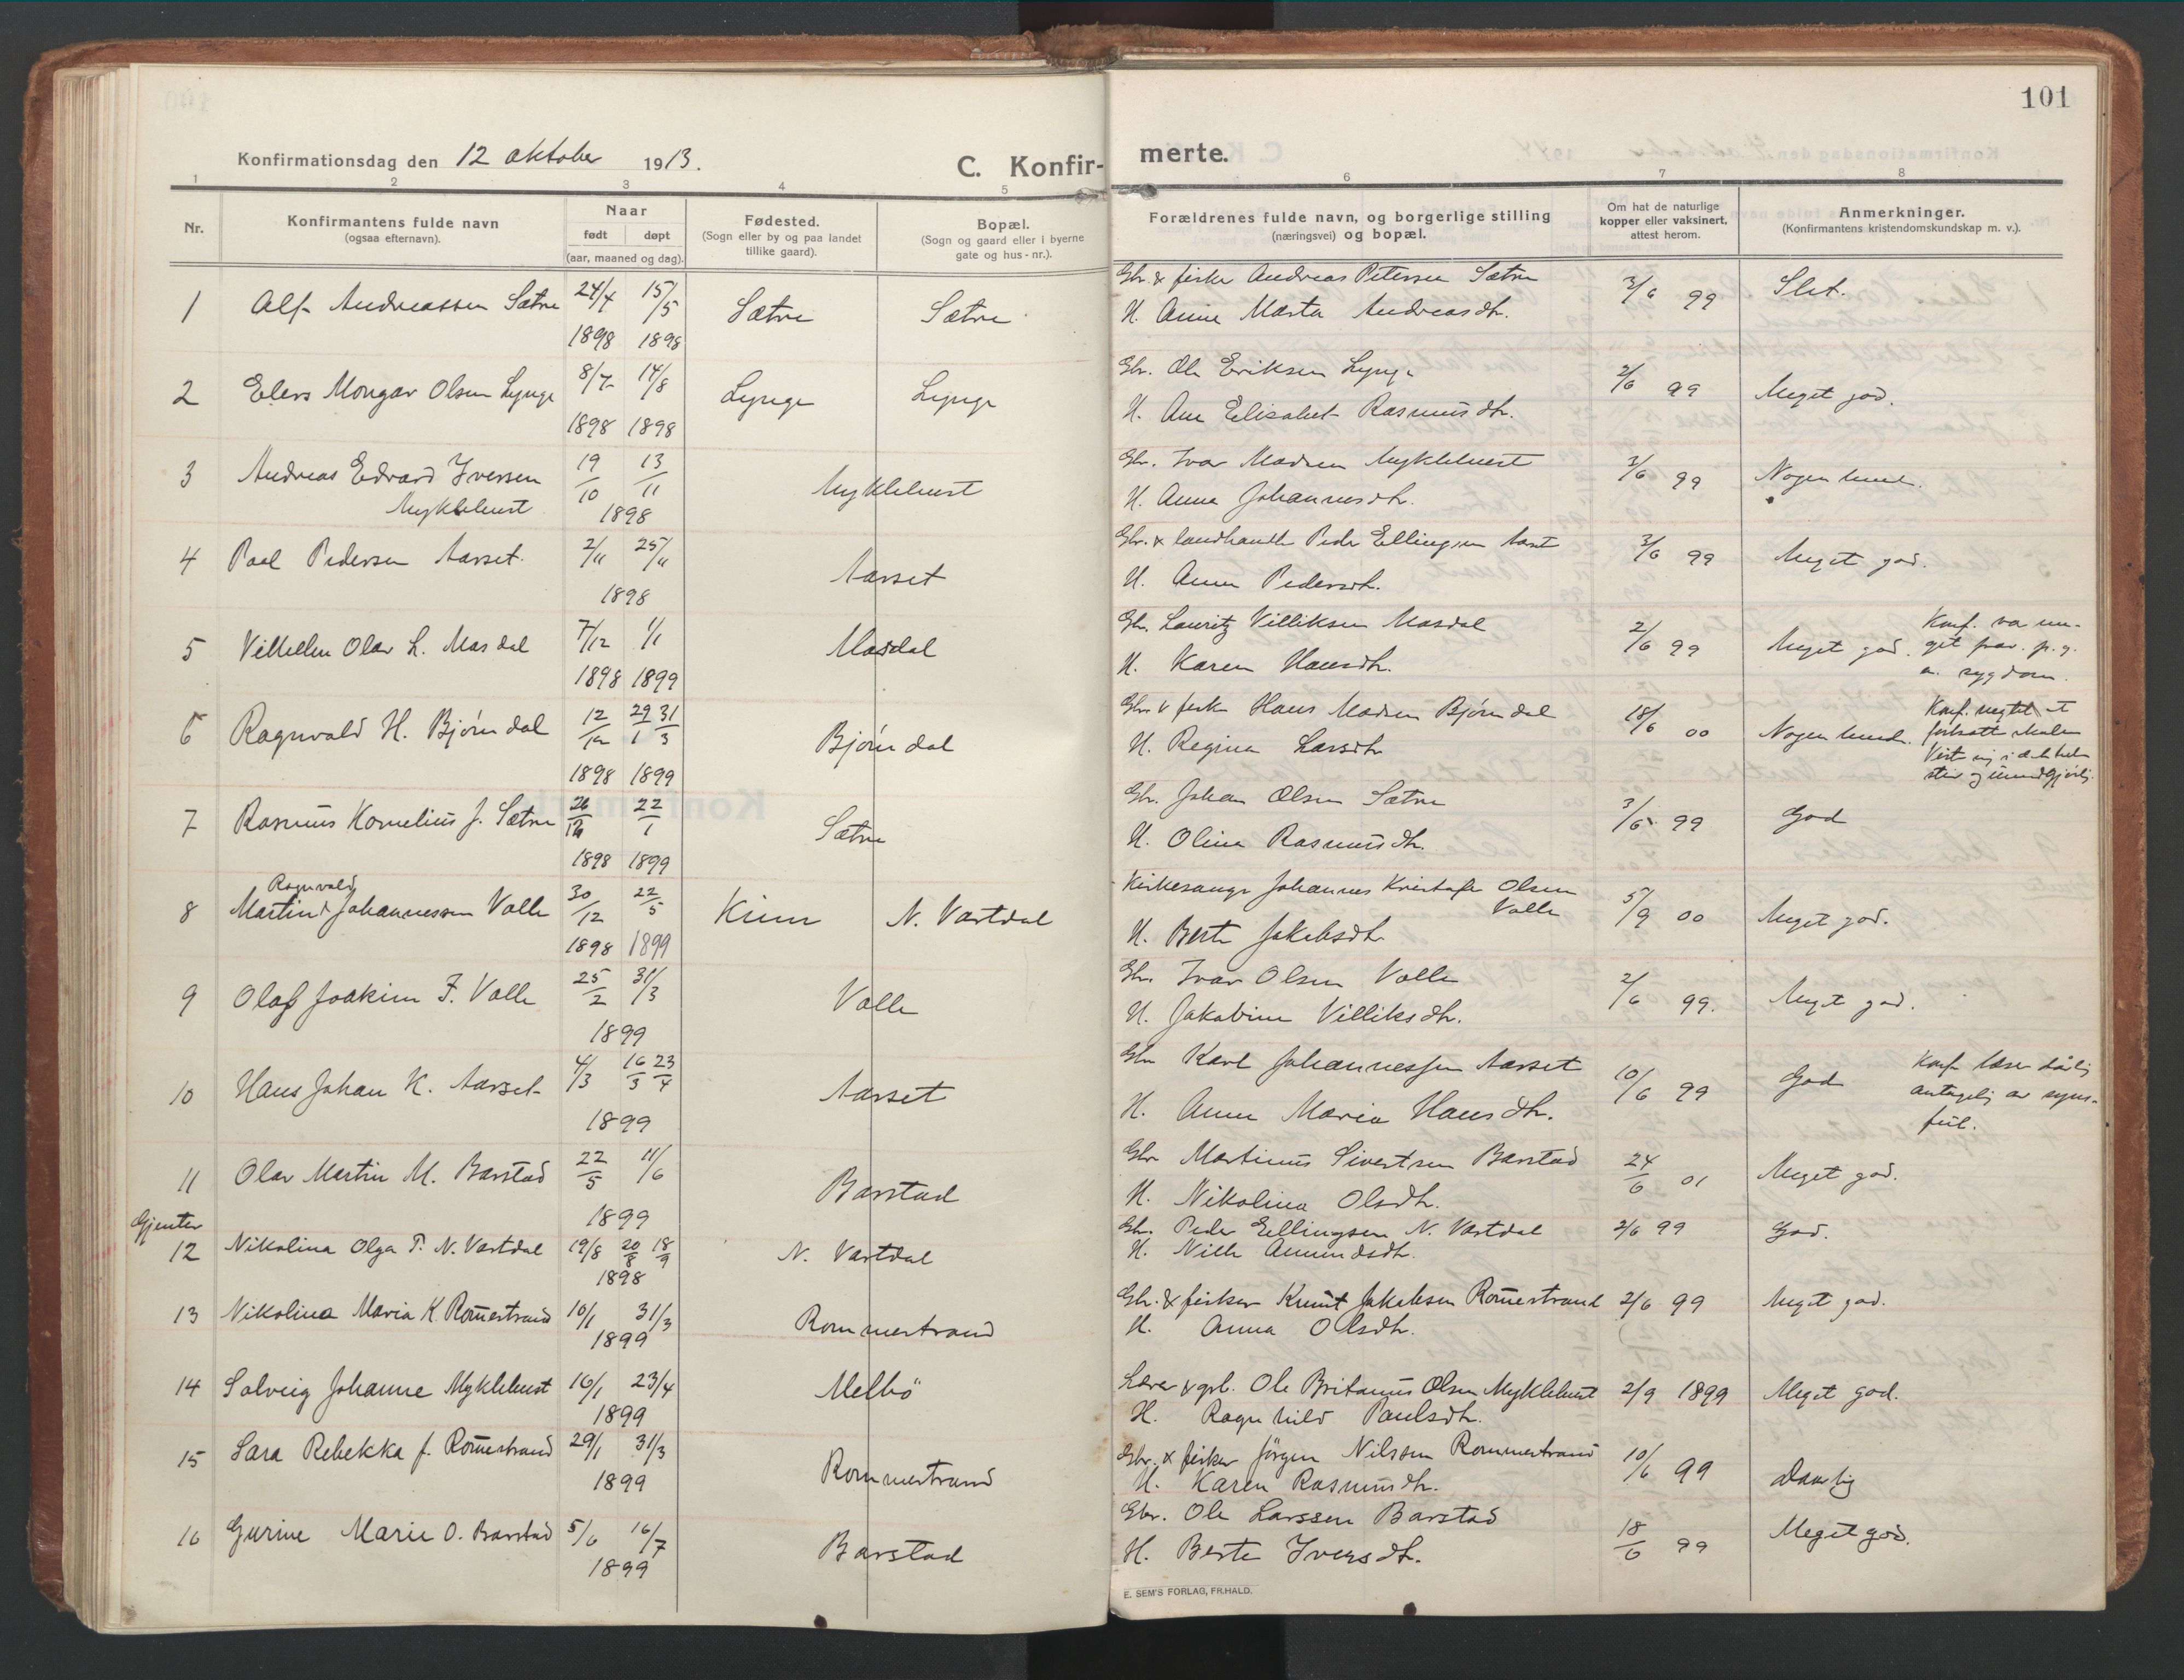 101
Konfirmationsdag den 12 oktober 1913.
C. Konfirmerte.
1 2 3 4 5 6 7 8
Nr.
Konfirmantens fulde navn
(ogsaa efternavn).
Naar
født døpt
(aar, maaned og dag).
Fødested.
(Sogn eller by og paa landet
tillike gaard).
Bopæl.
(Sogn og gaard eller i byerne
gate og hus-nr.).
Forældrenes fulde navn, og borgerlige stilling
(næringsvei) og bopæl.
Om hat de naturlige
kopper eller vaksinert,
attest herom.
Anmerkninger.
(Konfirmantens kristendomskundskap m. v.).
1 Alf Andreassen Sætre 24/4 1898 15/5 1898 Sætre Sætre
Gbr. & fisker Andreas Petersen Sætre
H. Anne Marta Andreasdtr. 3/6 99 Slet.
2 Elers Mongar Olsen Lynge 8/7 1898 14/8 1898 Lynge Lynge
Gbr. Ole Eriksen Lynge
H. Ane Elisabet Rasmusdtr. 2/6 99 Meget god.
3 Andreas Edvard Iversen
Myklebust 19/10 13/11 1898 Myklebust
Gbr. Ivar Madsen Myklebust
H. Anna Johannesdtr. 2/6 99 Nogenlunde.
4 Poal Pedersen Aarset. 2/11 25/11 1898 Aarset
Gbr. & landhandl. Peder Ellingsen Aarset
H. Anna Pedersdtr. 3/6 99 Meget god.
5 Vilhelm Olav L. Masdal 7/12 1898 1/1 1899 Masdal
Gbr. Lauritz Villiksen Masdal
H. Karen Hansdtr. 2/6 99 Meget god.
Konf. va me-
get frav. p. g.
a. sygdom.
6 Ragnvald H. Bjørndal 12/12 1898 29/1 31/3 1899 Bjørndal
Gbr & fisker Hans Madsen Bjørndal
H. Regina Larsdtr. 18/6 00 Nogenlunde.
7 Rasmus Kornelius J. Sætre 26/12 1898 22/1 1899 Sætre
Gbr. Johan Olsen Sætre
H. Olina Rasmusdtr. 3/6 99 God
8 Ragnvald
Martin Johannessen Valle 30/12 1898 22/5 1899 Kinn N. Vartdal
Kirkesanger Johannes Kristofer Olsen
Valle
H. Berte Jakobsdtr. 5/9 00 Meget god.
9 Olaf Joakim I. Valle 25/2 31/3 1899 Valle
Gbr. Ivar Olsen Valle
H. Jakobine Villiksdtr. 2/6 99. Meget god.
10 Hans Johan K. Aarset 4/3 16/3 23/4 1899 Aarset
Gbr Karl Johannessen Aarset
H. Anne Maria Hansdtr. 10/6 99 God
Konf. læser dårlig
antagelig av syns-
feil.
11 Olav Martin M. Barstad 22/5 11/6 1899 Barstad
Gbr Martinus Sivertsen Barstad
H. Nikolina Olsdtr. 24/6 01 Meget god.
Gjenter
12 Nikolina Olga P. N. Vartdal 19/8 20/8 18/9 1898 N. Vartdal
Gbr. Peder Ellingsen N. Vartdal
H. Nille Amundsdtr. 2/6 99 God.
13 Nikolina Maria K. Romestrand 10/1 31/3 1899 Rommestrand
Gbr. & fisker Knut Jakobsen Romestrand
H. Anna Olsdtr. 2/6 99 Meget god.
14 Solveig Johanne Myklebust 16/1 23/4 1899 Melbö
Lærer & grb. Ole Britanus Olsen Myklebust
H. Ragnhild Paulsdtr. 2/9 1899 Meget god.
15 Sara Rebekka J. Romestrand 29/1 31/3 1899 Rommestrand
Gbr. & fisker Jörgen Nilssen Rommestrand
H. Karen Rasmusdtr. 10/6 99 Daarlig
16 Gurine Marie O. Barstad 5/6 16/7 1899 Barstad
Gbr. Ole Larssen Barstad
H. Berte Iversdtr. 18/6 99 Meget god.
E. SEM'S FORLAG, FR.HALD.